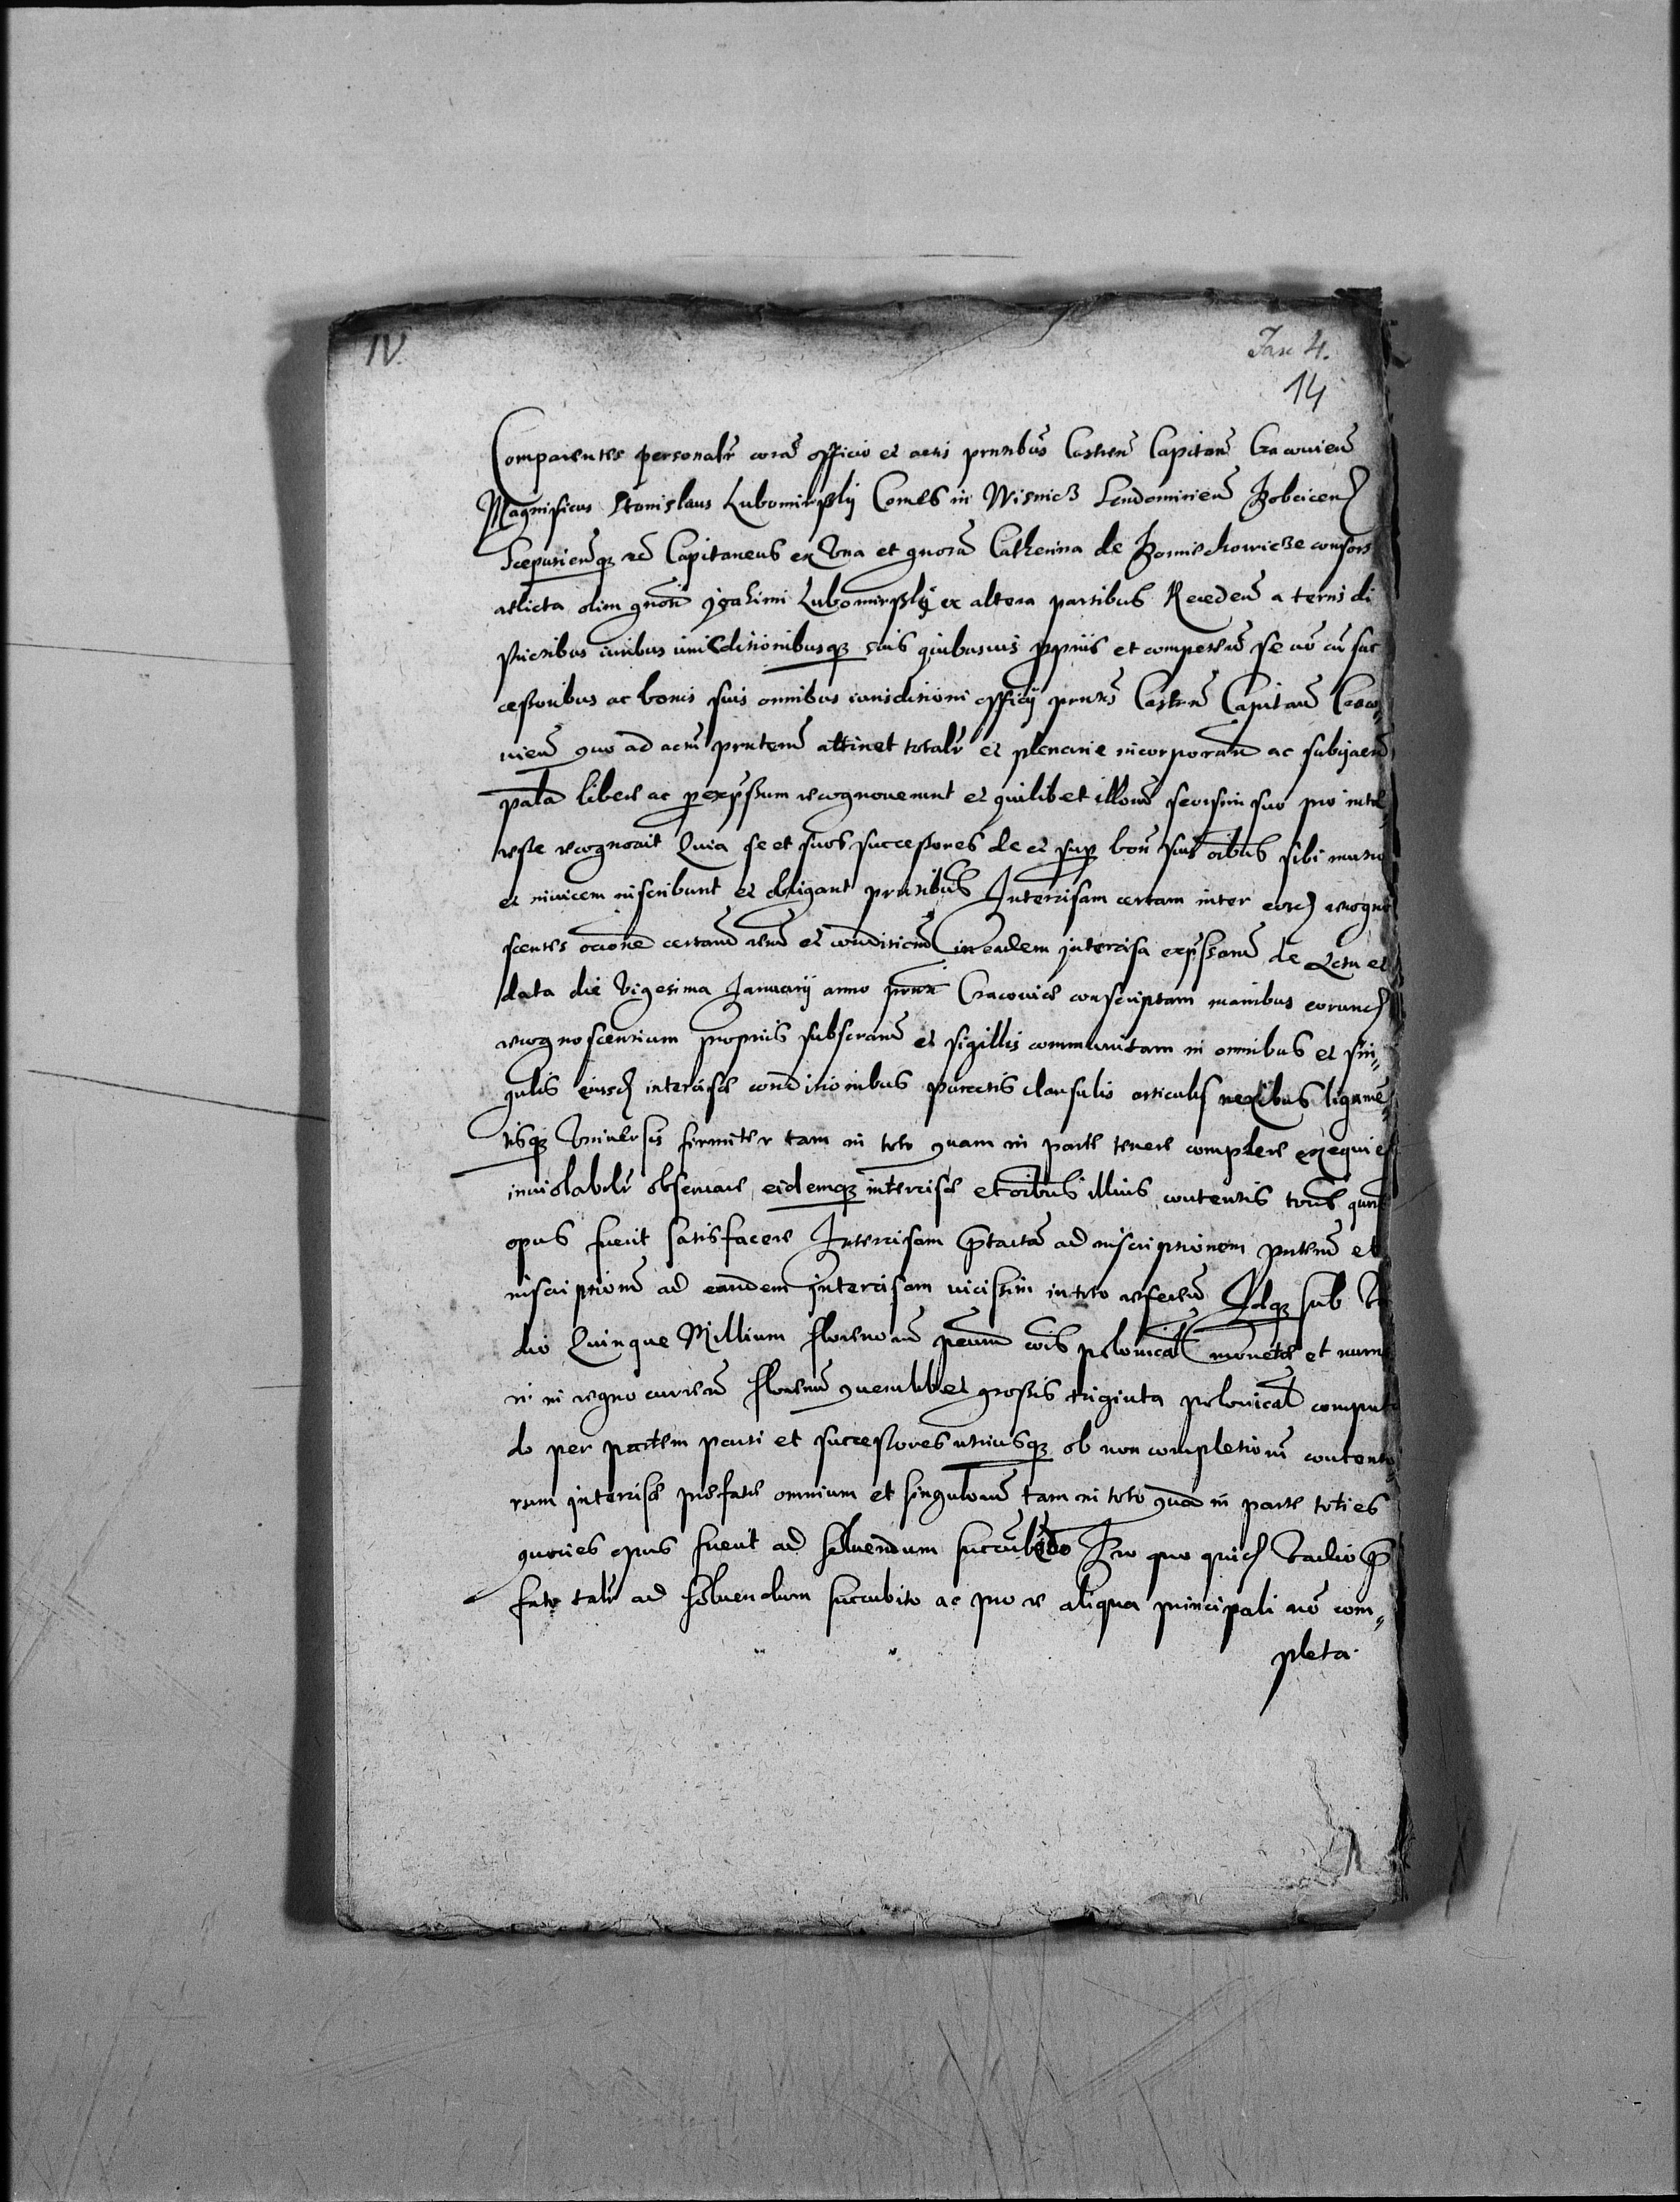 IV.
Fasc 4.
14
Comparentes personalr corã officio et actis prntibus Castren Capitan Cracovien
Magnificus Stanislaus Lubomirssky Comes in Wisnicz Sendomirien Zobcicen
Scepusienq et Capitaneus ex Una et gnosa Catherina de consors
relicta olim gnosi Joahimi Lubomirssky ex altera partibus Receden a terris di
strictibus iuribus iurisditionibusq suis quibusvis pprijs et competen se nō cū suc
cessoribus ac bonis suis omnibus iurisditioni officij prntis Castren Capitan Craco„
vien quo ad actū prntem attinet totalr et plenarie incorporan ac subijcien
palā libere ac p expssum recognoverunt et quilibet illorū seorsim suo pro inte
resse recognovit Quia se et suos successores de et sup bonis suis oibus sibi mutuo
et invicem inscribunt et obligant prntibus Intercisam certam inter eosd recogno
scentes ōne certarū rerū et conditionū in eadem intercisa expssarū de Actu et
data die Vigesima Januarij anno prnti Cracoviæ conscriptam manibus eorund
recognoscentium proprijs subscratam et sigillis communitam in omnibus et sin„
gulis eiusd intercisæ conditionibus punctis clausulis articulis nexibus ligamē
tisq Universis firmiter tam in toto quam in parte tenere complere exequi et
inviolabilr observare eidemq intercisæ et oibus illius contentis toties quoties
opus fuerit satisfacere Intercisam ptactā ad inscriptionem prntem et
inscriptionē ad eandem intercisam vicissim in toto referen Idq sub Va
dio Quinque Millium florenorū pecun cois polonical monetæ et nume
ri in regno curren florenū quemlibet grossis triginta polonical computa
do per partem parti et successores utriusq ob non completionē contento
rum intercisæ præfatæ omnium et singulorū tam in toto quā in parte toties
quoties opus fuerit ad solvendum succubēdo Pro quo quid Vadio p
fato talr ad solvendum succubito ac pro re aliqua principali nō com„
pleta.